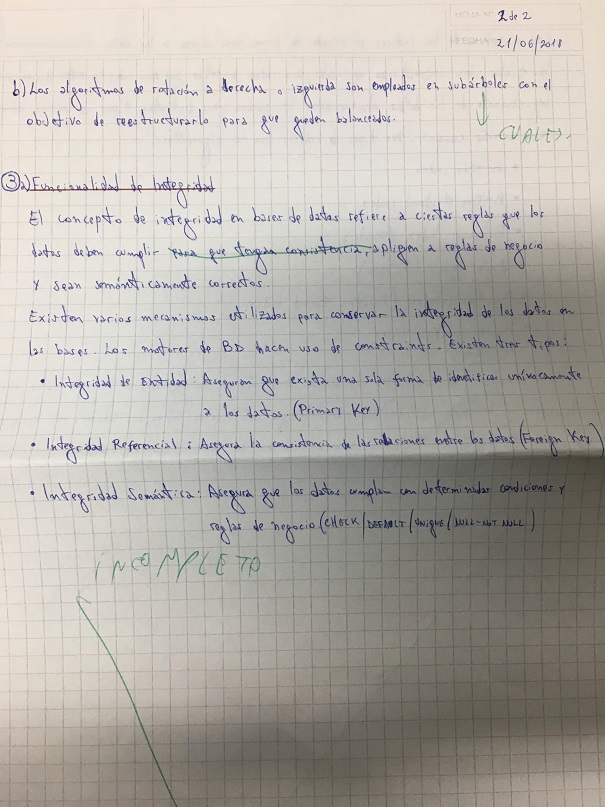 HOJA Nº 2 de 2
FECHA 21/06/2018
b) Los algoritmos de rotación a derecha o izquierda son empleados en subárboles con el
objetivo de reestructurarlo para que queden balanceados.
CUALES.
3 a) Funcionalidad de Integridad
El concepto de integridad en bases de datos refiere a ciertas reglas que los
datos deben cumplir para que tengan consistencia, apliquen a reglas de negocio
y sean semánticamente correctos.
Existen varios mecanismos utilizados para conservar la integridad de los datos en
las bases. Los motores de BD hacen uso de constraints. Existen tres tipos:
• Integridad de Entidad: Aseguran que exista una sola forma de identificar unívocamente
a los datos. (Primary Key)
• Integridad Referencial: Asegura la consistencia de las relaciones entre los datos (Foreign Key)
• Integridad Semántica: Asegura que los datos cumplan con determinadas condiciones y
reglas de negocio (CHECK/DEFAULT/UNIQUE/NULL-NOT NULL)
INCOMPLETO